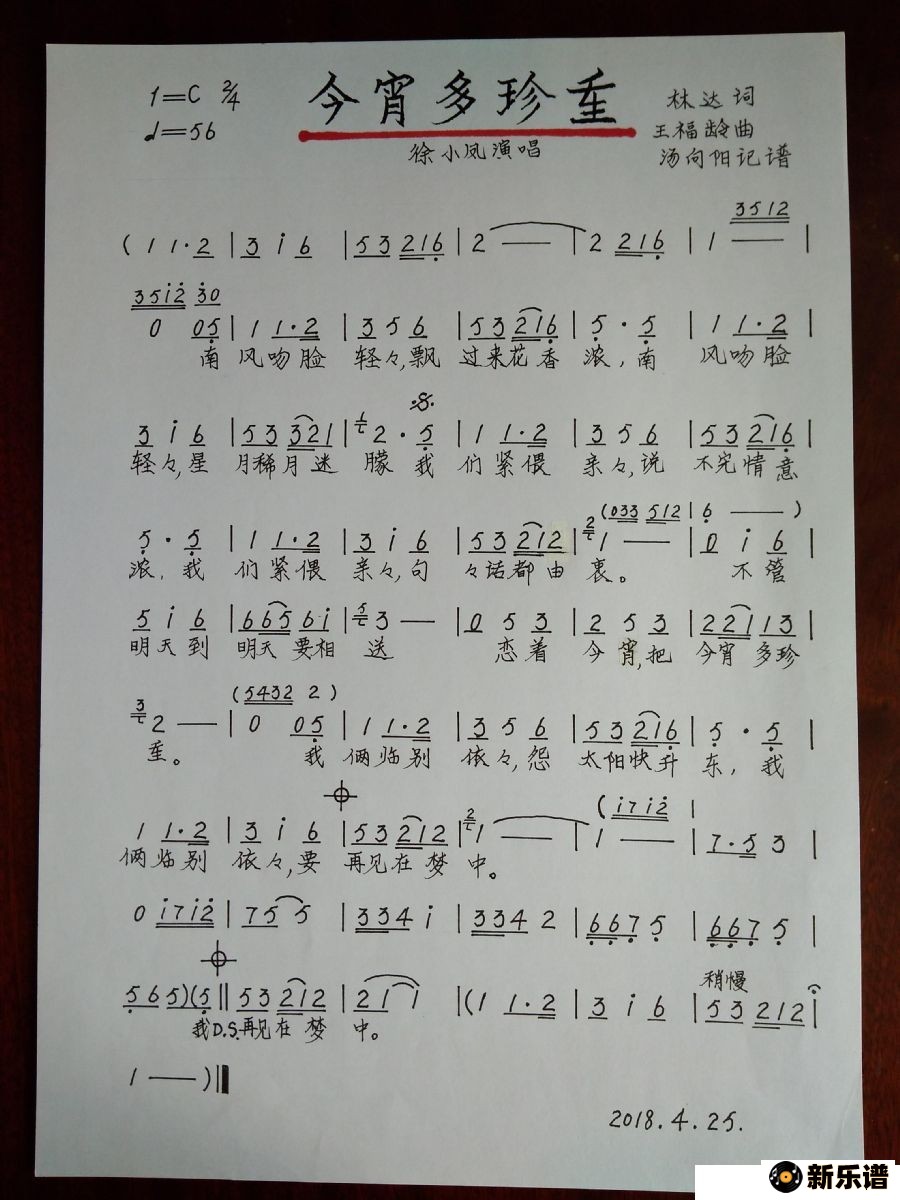 1=C 2/4
♩=56
今宵多珍重
徐小凤演唱
林达词
王福龄曲
汤向阳记谱
3512
( 1 1·2 | 3 i 6 | 53 216 | 2 — | 2 216 | 1 — |
35i2 30
0 05 | 1 1·2 | 3 5 6 | 53 216 | 5 · 5 | 1 1·2 |
南 风吻脸 轻々,飘 过来花香 浓,南 风吻脸
3 i 6 | 53 321 | 2 · 5 | 1 1·2 | 3 5 6 | 53 216 |
轻々,星 月稀月迷 朦 我 们紧偎 亲々,说 不完情意
(033 512 | 6 — )
5 · 5 | 1 1·2 | 3 i 6 | 53 212 | 1 — | 0 i 6 |
浓,我 们紧偎 亲々,句 々话都由 衷。 不管
5 i 6 | 665 6·i | 3 — | 0 5 3 | 2 5 3 | 221 13 |
明天到 明天要相 送 恋着 今宵,把 今宵多珍
(5432 2 )
2 — | 0 05 | 1 1·2 | 3 5 6 | 53 216 | 5 · 5 |
重。 我 俩临别 依々,怨 太阳快升 东,我
(i7i2 |
1 1·2 | 3 i 6 | 53 212 | 1 — | 1 — | 7·5 3 |
俩临别 依々,要 再见在梦 中。
0 i7i2 | 75 5 | 334 i | 334 2 | 667 5 | 667 5 |
稍慢
565)(5 || 53 212 | 21 1 |(1 1·2 | 3 i 6 | 53 212 |
我D.S.再见在梦 中。
1 — )||
2018.4.25.
新乐谱